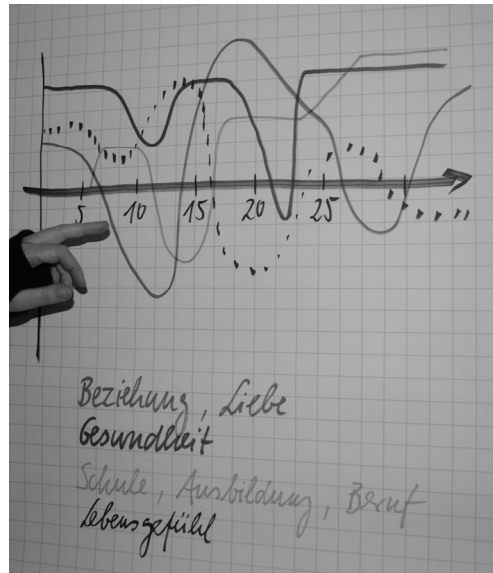 5 10 15 20 25
Beziehung, Liebe
Gesundheit
Schule, Ausbildung, Beruf
Lebensgefühl